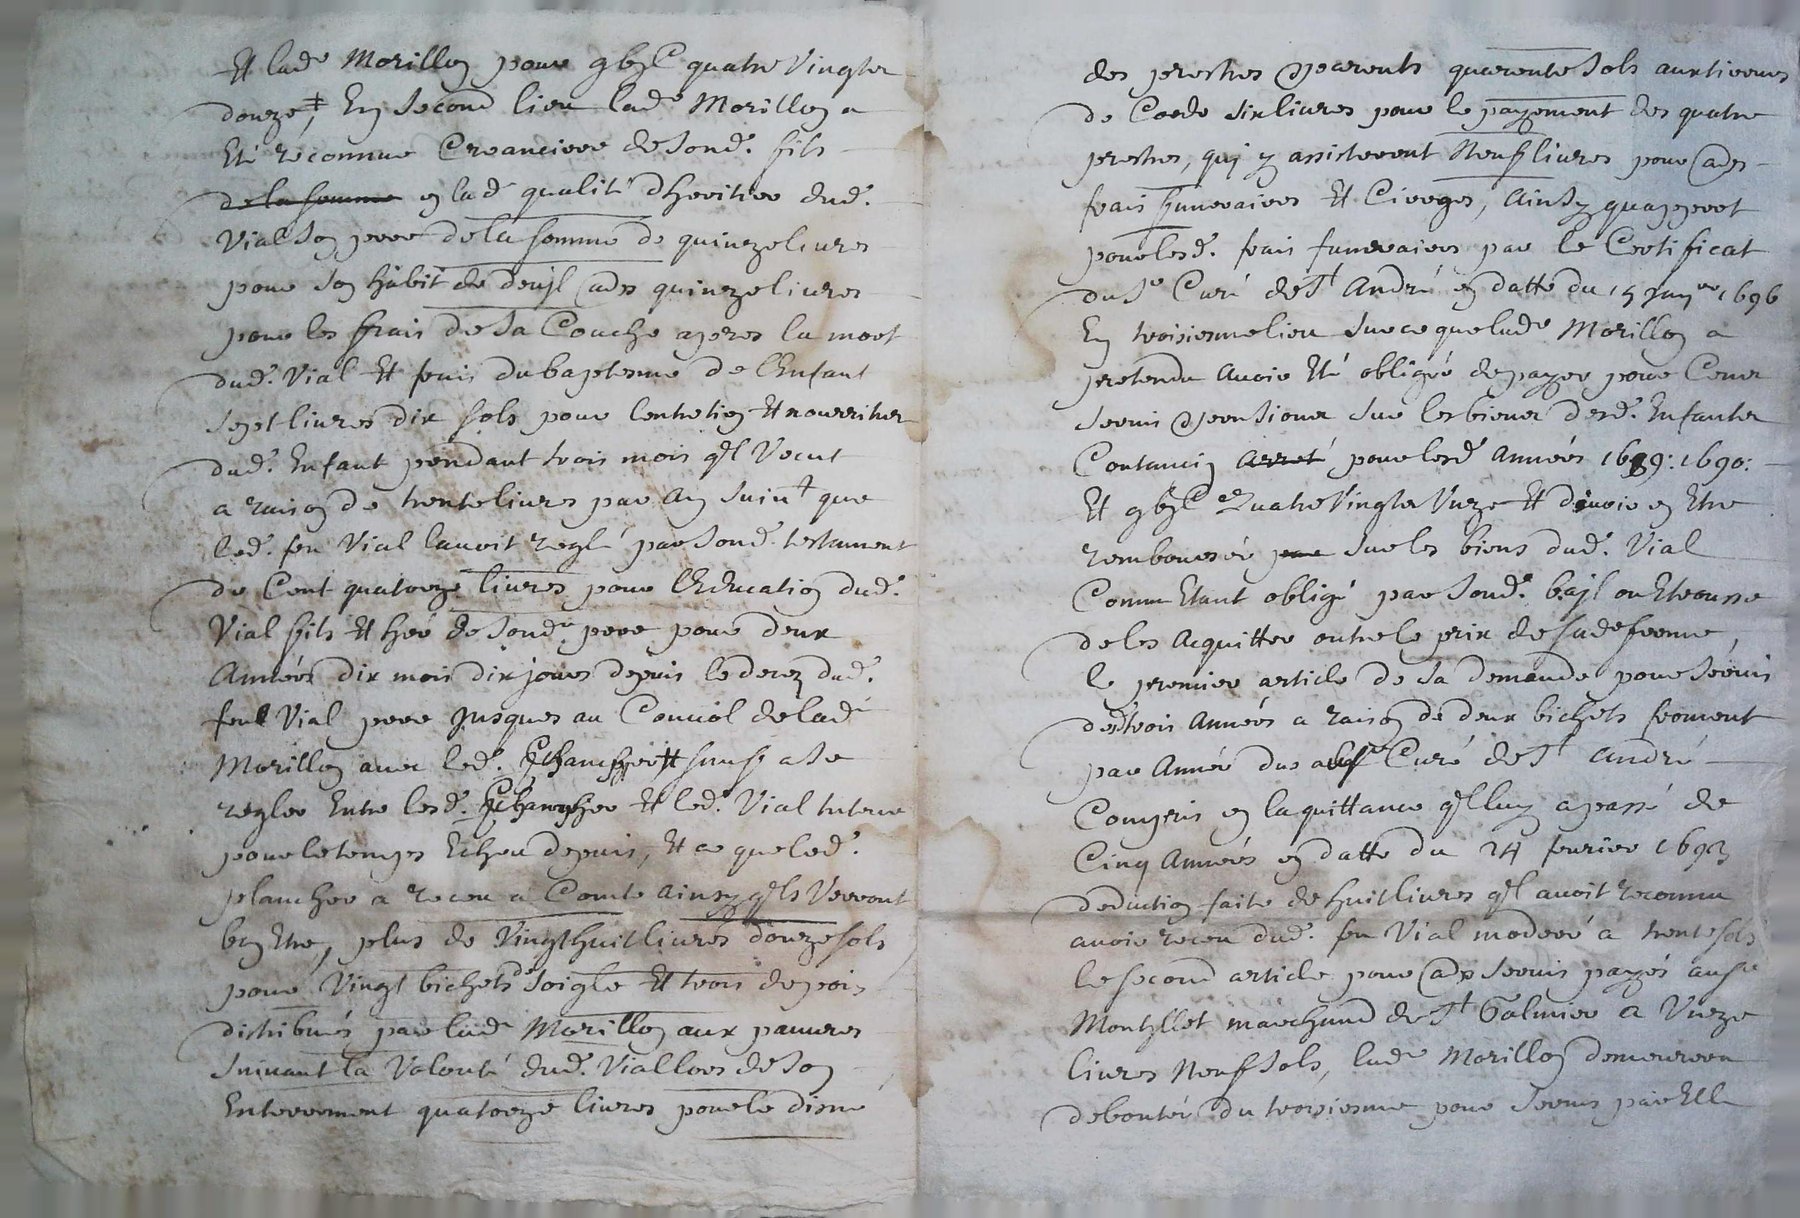 Et lad.e Morillon pour gbjc quatre Vingtz
douze, En Second lieu lad.e Morillon a
Eté reconnue Creanciere de Sond. fils
de la somme en lad. qualité dheritier dud.
Vial Son pere de la Somme de quinze livres
pour Son habit de deuil quinze livres
pour les frais de Sa Couche apres la mort
dud. Vial Et frais du baptesme de l'Enfant
Sept livres dix Sols pour lentretien Et nourriture
dud. Enfant pendant trois mois ql Vecut
a raison de trente livres par an Suivt que
led. feu Vial lavoit reglé par Sond. testament
de Cent quatorze livres pour l'Education dud.
Vial fils Et her de Sond. pere pour deux
Années dix mois dix jours depuis le decez dud.
feu Vial pere Jusques au Convol de lad.
Morillon avec led. sauf a Se
regler Entre lesd. Et led. Vial
pour le temps Echeu depuis, Et ce que led.
plancher a receu a Comte ainsy qls Verront
bon Etre, plus de Vingt huit livres douze sols
pour Vingt bichets de Soigle Et trois de pois
distribués par lad. Morillon aux pauvres
Suivant la Volonté dud. Vial lors de Son
Enterrement quatorze livres pour le disné
des prestres & parents quarente Sols aux tireurs
de Corde Six livres pour le payement des quatre
prestres, qui y assisterent Neuf livres pour
frais funeraires Et Cierges, Ainsy quappert
pour lesd. frais funeraires par le Certificat
du Sr Curé de St André en datte du 15 1696
En troisiesme lieu Sur ce que lad.e Morillon a
pretendu Avoir Eté obligée de payer pour Cens
Servis & pensions Sur les biens desd. Enfants
Coutancin arret pour lesd. Années 1689: 1690:
Et gbjc Quatre Vingtz Unze Et devoir en Etre
remboursée pour Sur les biens dud. Vial
Comme Etant obligé par Sond. bail ou
de les Acquitter outre le prix de Sade ferme,
le premier article de Sa demande pour Servis
desd. trois Années a raison de deux bichets froment
par Année dus Curé de St André
Compris en la quittance ql luy a passé de
Cinq Années en datte du 24 fevrier 1693
deduction faite de huit livres ql avoit reconnu
avoir receu dud. feu Vial moderé a trente sols
le second article pour Servis payés au Sr
Montzllet marchand de St Galmier a Unze
livres Neuf Sols, lad.e Morillon demeurera
deboutée du troisiesme pour Servis par Elle